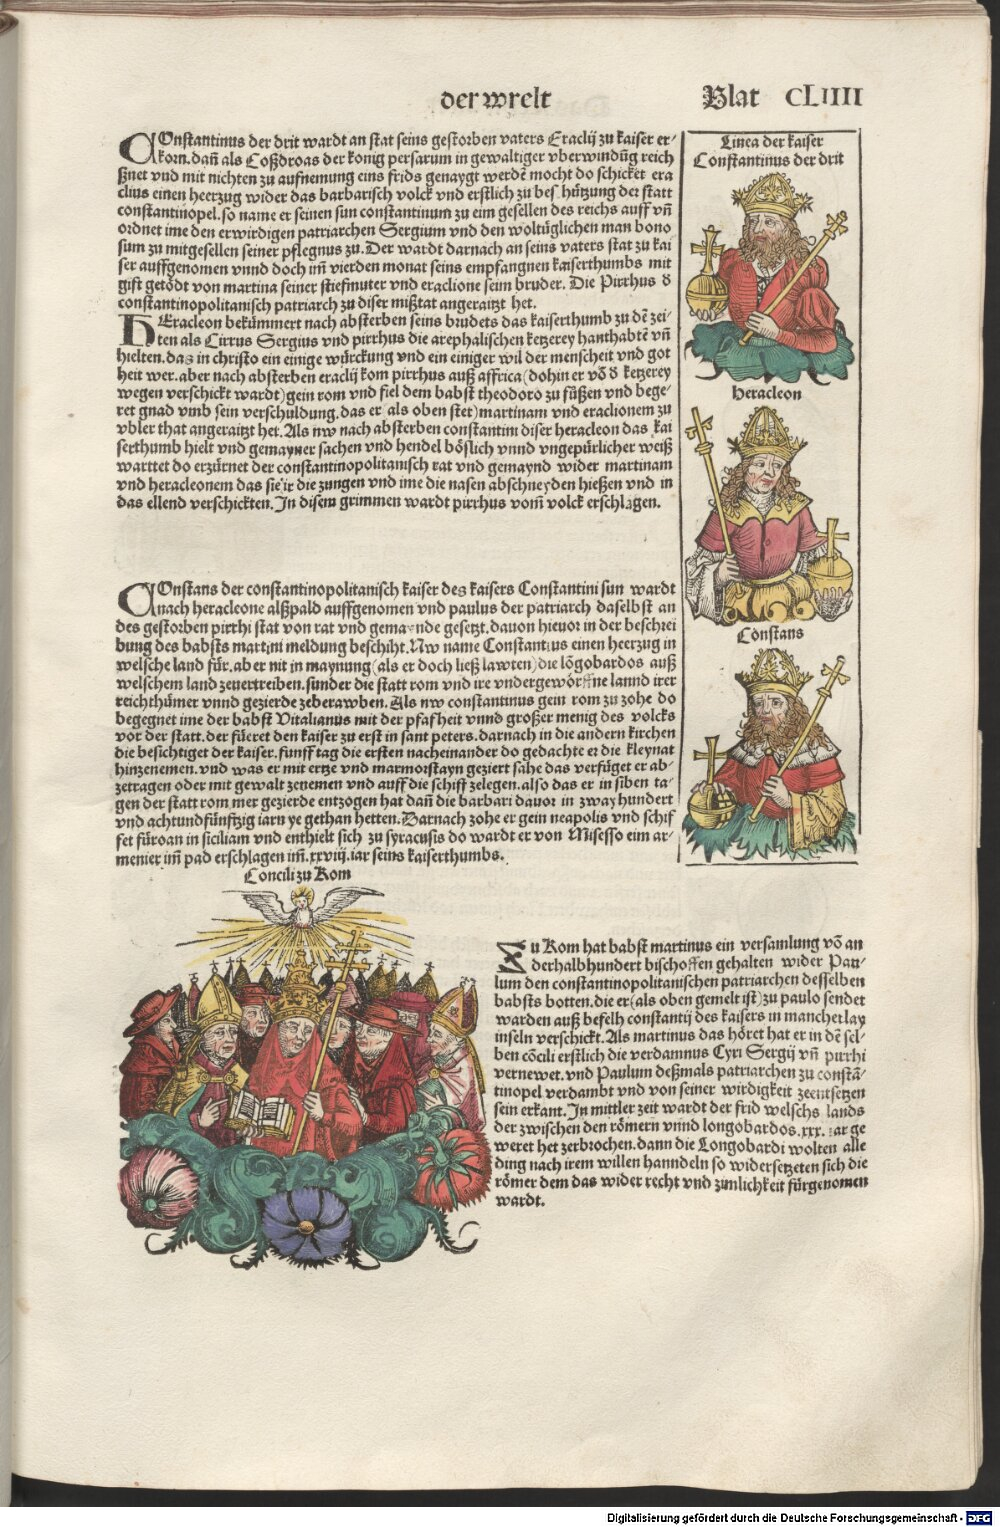 der wrelt
Blat CLIIII
COnstantinus der drit wardt an stat seins gestorben vaters Eraclij zu kaiser er-
korn. dañ als Coßdroas der konig persarum in gewaltiger vberwindũg reich
ßnet vnd mit nichten zu aufnemung eins frids genaygt werdẽ mocht do schicket era
clius einen heerzug wider das barbarisch volck vnd erstlich zu beschützung der statt
constantinopel. so name er seinen sun constantinum zu eim gesellen des reichs auff vñ
ordnet ime den erwirdigen patriarchen Sergium vnd den woltüglichen man bono
sum zu mitgesellen seiner pflegnus zu. Der wardt darnach an seins vaters stat zu kai
ser auffgenomen vnnd doch im̃ vierden monat seins empfangnen kaiserthumbs mit
gift getödt von martina seiner stiefmuter vnd eraclione seim bruder. Die Pirrhus d̕
constantinopolitanisch patriarch zu diser mißtat angeraitzt het.
HEracleon bekümmert nach absterben seins brudets das kaiserthumb zu dẽ zei-
ten als Cirrus Sergius vnd pirrhus die arephalischen ketzerey hanthabtẽ vñ
hielten. das in christo ein einige würckung vnd ein einiger wil der menscheit vnd got
heit wer. aber nach absterben eraclij kom pirrhus auß affrica (dohin er võ d̕ ketzerey
wegen verschickt wardt) gein rom vnd fiel dem babst theodoro zu füßen vnd bege-
ret gnad vmb sein verschuldung. das er (als oben stet) martinam vnd eraclionem zu
vbler that angeraitzt het. Als nw nach absterben constantini diser heracleon das kai
serthumb hielt vnd gemayner sachen vnd hendel böslich vnnd vngepürlicher weiß
warttet do erzürnet der constantinopolitanisch rat vnd gemaynd wider martinam
vnd heracleonem das sie ir die zungen vnd ime die nasen abschneyden hießen vnd in
das ellend verschickten. In disem grimmen wardt pirrhus vom̃ volck erschlagen.
COnstans der constantinopolitanisch kaiser des kaisers Constantini sun wardt
nach heracleone alßpald auffgenomen vnd paulus der patriarch daselbst an
des gestorben pirrhi stat von rat vnd gemaynde gesetzt. dauon hieuor in der beschrei
bung des babsts martini meldung beschiht. Nw name Constantius einen heerzug in
welsche land für. aber nit in maynung (als er doch ließ lawten) die lõgobardos auß
welschem land zeuertreiben. sunder die statt rom vnd ire vndergeworffne lannd irer
reichthümer vnnd gezierde zeberawben. Als nw constantinus gein rom zu zohe do
begegnet ime der babst Vitalianus mit der pfafheit vnnd großer menig des volcks
vor der statt. der füeret den kaiser zu erst in sant peters. darnach in die andern kirchen
die besichtiget der kaiser. funff tag die ersten nacheinander do gedachte er die kleynat
hinzenemen. vnd was er mit ertze vnd marmorstayn geziert sahe das verfüget er ab-
zetragen oder mit gewalt zenemen vnd auff die schiff zelegen. also das er in siben ta-
gen der statt rom mer gezierde entzogen hat dañ die barbari dauor in zway hundert
vnd achtundfünftzig iarn ye gethan hetten. Darnach zohe er gein neapolis vnd schif
fet füroan in siciliam vnd enthielt sich zu syracusis do wardt er von Misesso eim ar-
menier im̃ pad erschlagen im̃. xxviij. iar seins kaiserthumbs.
Linea der kaiser
Constantinus der drit
Heracleon
Cõnstans
Concili zu Rom
Zu Rom hat babst martinus ein versamlung võ an
derhalbhundert bischoffen gehalten wider Pau-
lum den constantinopolitanischen patriarchen desselben
babsts botten. die er (als oben gemelt ist) zu paulo sendet
warden auß befelh constantij des kaisers in mancherlay
inseln verschickt. Als martinus das höret hat er in dẽ sel-
ben cõcili erstlich die verdamnus Cyri Sergij vñ pirrhi
vernewet. vnd Paulum deßmals patriarchen zu constã-
tinopel verdambt vnd von seiner wirdigkeit zeentsetzen
sein erkant. In mittler zeit wardt der frid welschs lands
der zwischen den römern vnnd longobardos. xxx. iar ge
weret het zerbrochen. dann die Longobardi wolten alle
ding nach irem willen hanndeln so widersetzeten sich die
römer dem das wider recht vnd zimlichkeit fürgenomen
wardt.
Digitalisierung gefördert durch die Deutsche Forschungsgemeinschaft - DFG